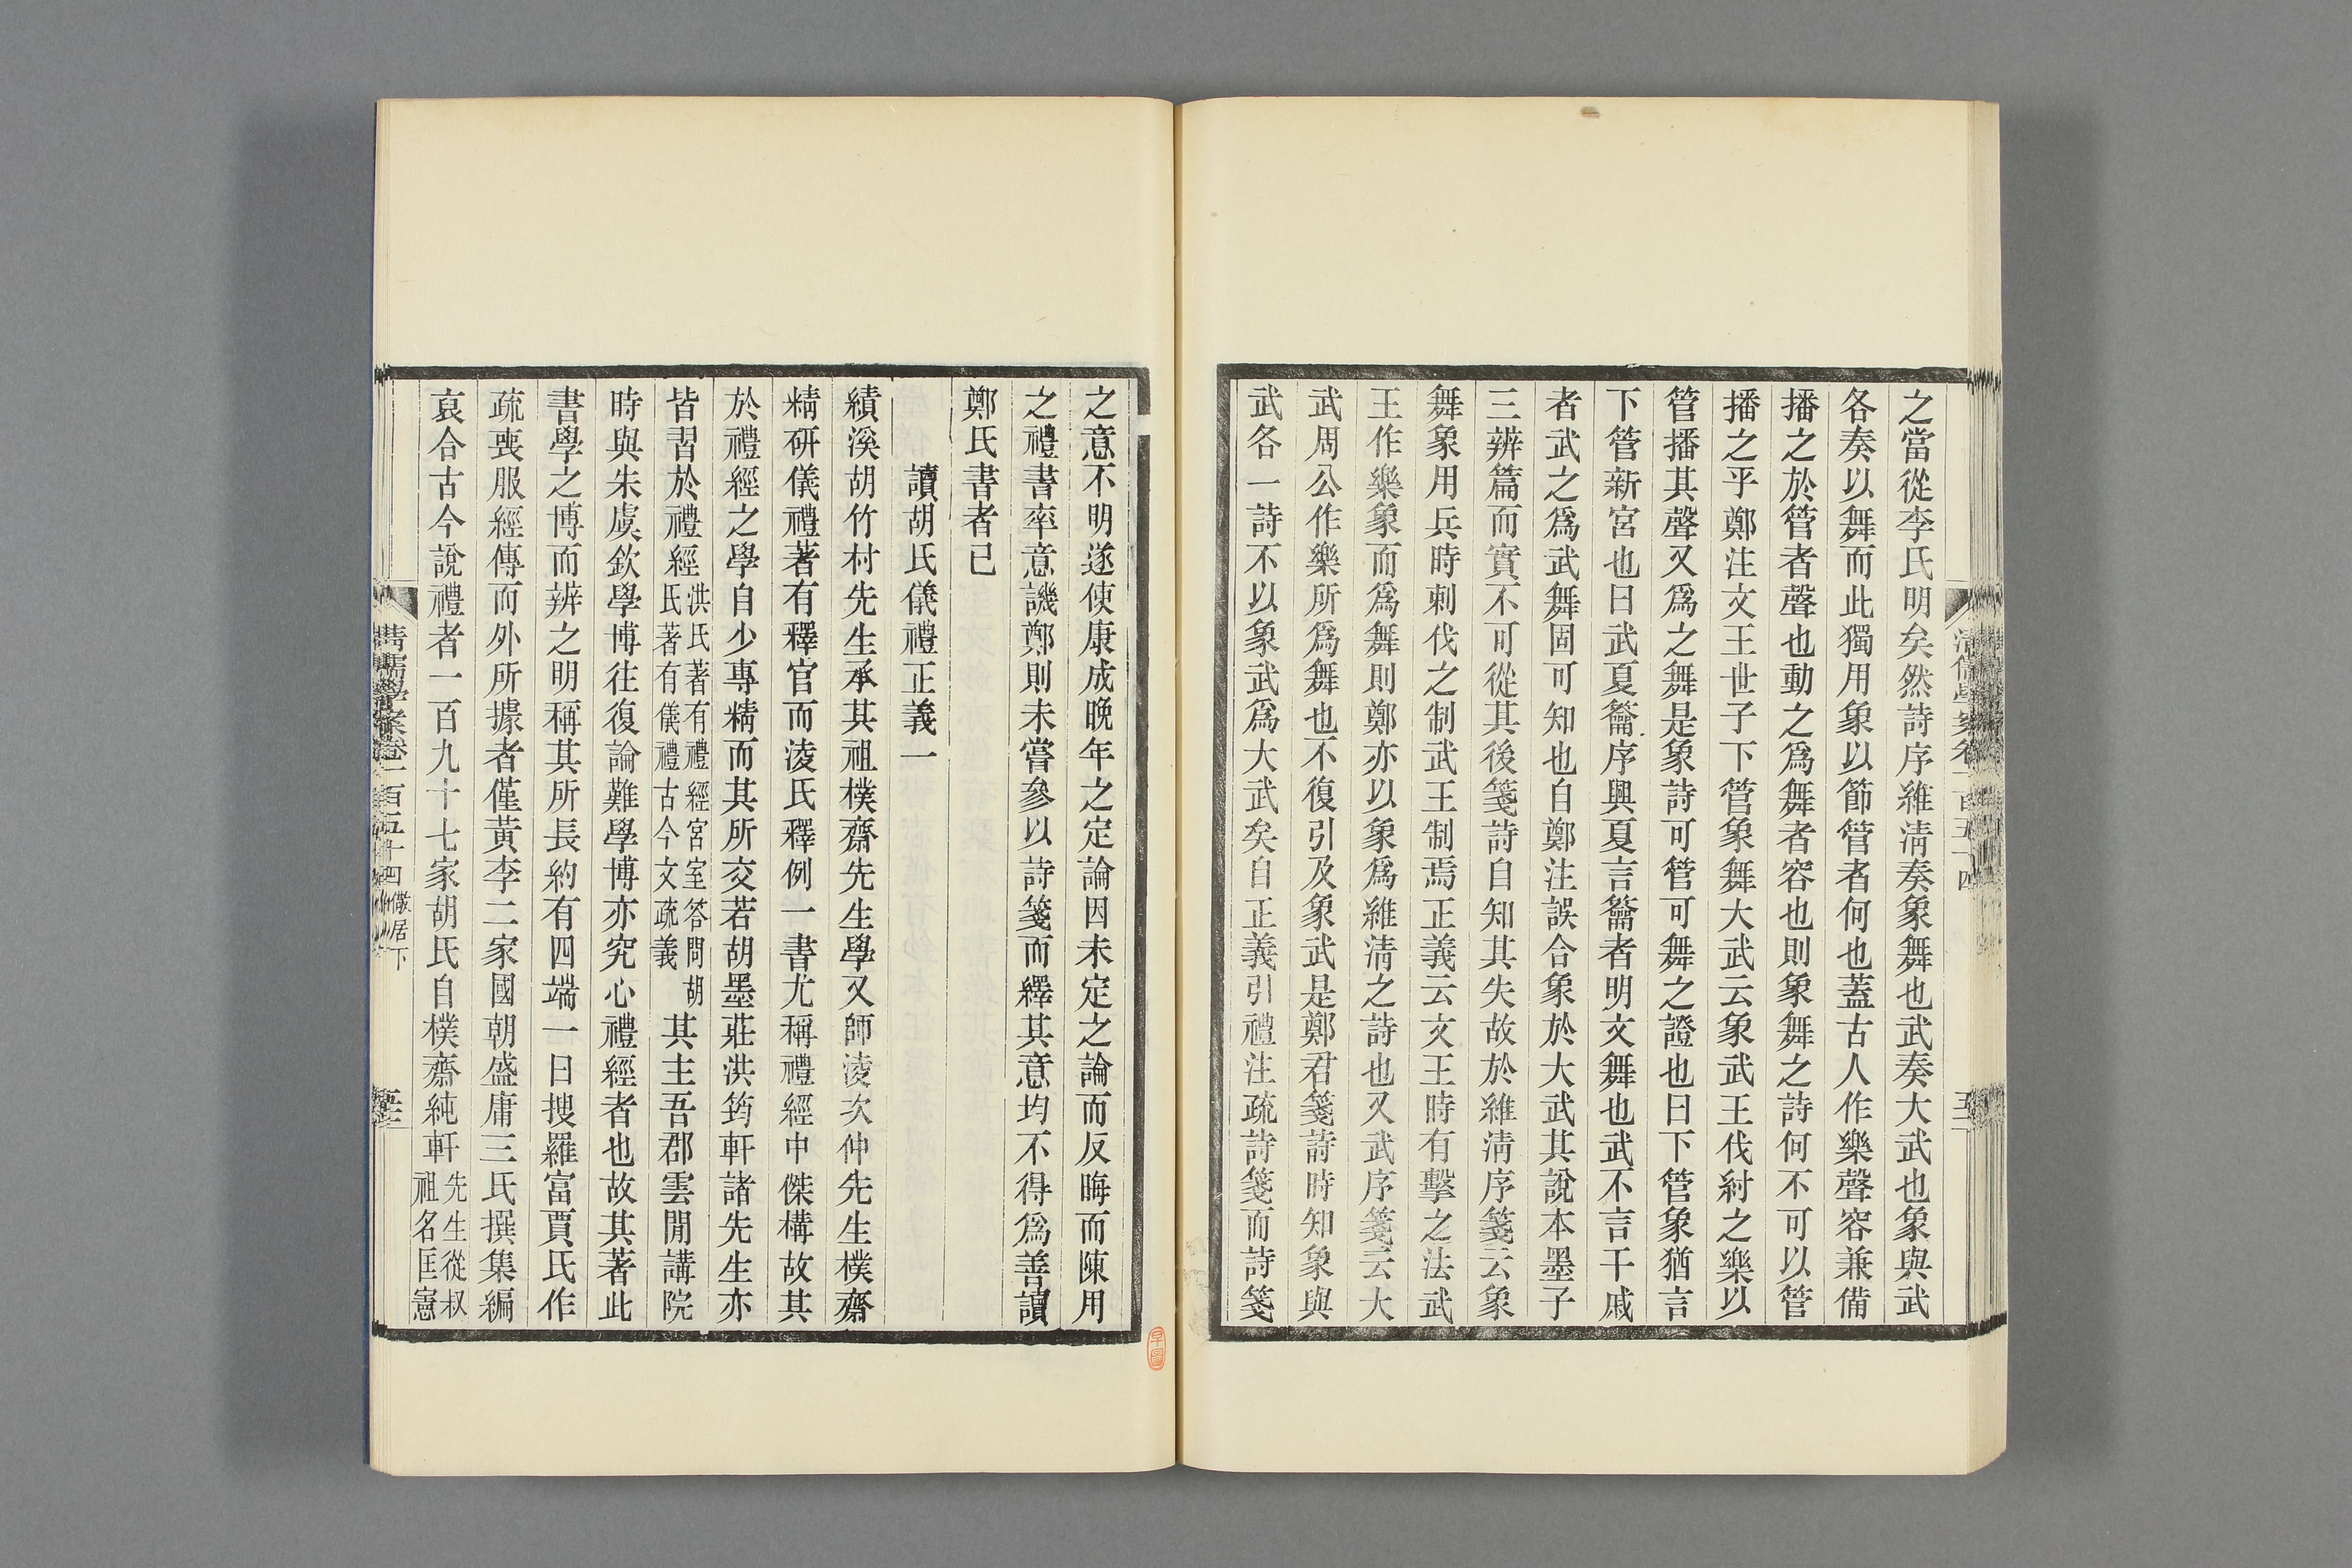 之當從李氏明矣然詩序維淸奏象舞也武奏大武也象與武
各奏以舞而此獨用象以節管者何也蓋古人作樂聲容兼備
播之於管者聲也動之爲舞者容也則象舞之詩何不可以管
播之乎鄭注文王世子下管象舞大武云象武王伐紂之樂以
管播其聲又爲之舞是象詩可管可舞之證也曰下管象猶言
下管新宮也曰武夏籥序興夏言籥者明文舞也武不言干戚
者武之爲武舞固可知也自鄭注誤合象於大武其說本墨子
三辨篇而實不可從其後箋詩自知其失故於維淸序箋云象
舞象用兵時刺伐之制武王制焉正義云文王時有擊之法武
王作樂象而爲舞則鄭亦以象爲維淸之詩也又武序箋云大
武周公作樂所爲舞也不復引及象武是鄭君箋詩時知象與
武各一詩不以象武爲大武矣自正義引禮注疏詩箋而詩箋
之意不明遂使康成晚年之定論因未定之論而反晦而陳用
之禮書率意譏鄭則未嘗參以詩箋而繹其意均不得爲善讀
鄭氏書者已
讀胡氏儀禮正義一
績溪胡竹村先生承其祖樸齋先生學又師淩次仲先生樸齋
精研儀禮著有釋官而淩氏釋例一書尤稱禮經中傑構故其
於禮經之學自少專精而其所交若胡墨莊洪筠軒諸先生亦
皆習於禮經洪氏著有禮經宮室答問胡氏著有儀禮古今文疏義其主吾郡雲閒講院
時與朱虞欽學博往復論難學博亦究心禮經者也故其著此
書學之博而辨之明稱其所長約有四端一曰搜羅富賈氏作
疏喪服經傳而外所據者僅黃李二家國朝盛庸三氏撰集編
裒合古今說禮者一百九十七家胡氏自樸齋純軒先生從叔祖名匡憲
淸儒學案卷一百五十四 儆居下